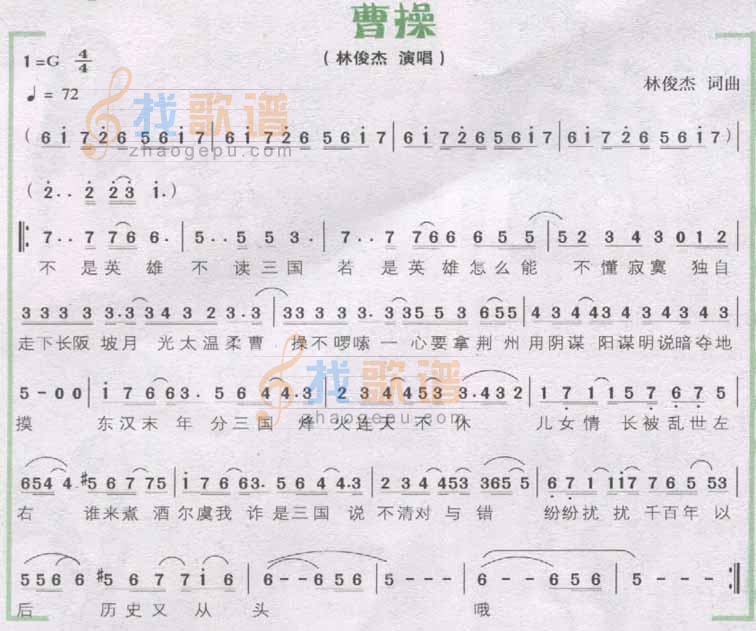 曹操
(林俊杰 演唱)
1=G 4/4
林俊杰 词曲
♩= 72
找歌谱
zhaogepu.com
(6 i 7 2 6 5 6 i 7 | 6 i 7 2 6 5 6 i 7 | 6 i 7 2 6 5 6 i 7 | 6 i 7 2 6 5 6 i 7)
(2·· 2 2 3 1·)
7·· 7 7 6 6· | 5·· 5 5 3· | 7·· 7 7 6 6 6 5 5 | 5 2 3 4 3 0 1 2
不 是英 雄 不 读三 国 若 是英 雄怎么能 不懂寂寞 独自
3 3 3 3 3·3 3 4 3 2 3·3 | 3 3 3 3 3·3 3 5 5 3 6 5 5 | 4 3 4 4 3 4 3 4 3 4 3
走下长阪 坡月 光太温柔曹 操不啰嗦一心要拿荆州用阴谋 阳谋明说暗夺地
5 - 0 0 | i 7 6 6 3· 5 6 4 4·3 | 2 3 4 4 5 3 3·4 3 2 | 1 7 1 1 5 7 6 7 5
摸 东汉末 年 分三国 烽 火连天 不 休 儿女情 长被乱世左
找歌谱
zhaogepu.com
6 5 4 4 #5 6 7 7 5 | i 7 6 6 3· 5 6 4 4·3 | 2 3 4 4 5 3 3 6 5 5 | 6 7 1 1 i 7 7 6 5 5 3
右 谁来煮 酒尔虞我 诈是三国 说 不清对 与 错 纷纷扰 扰千百年以
5 5 6 6 #5 6 7 7 i 6 | 6 - - 6 5 6 | 5 - - - | 6 - - 6 5 6 | 5 - - -
后 历史又 从 头 哦